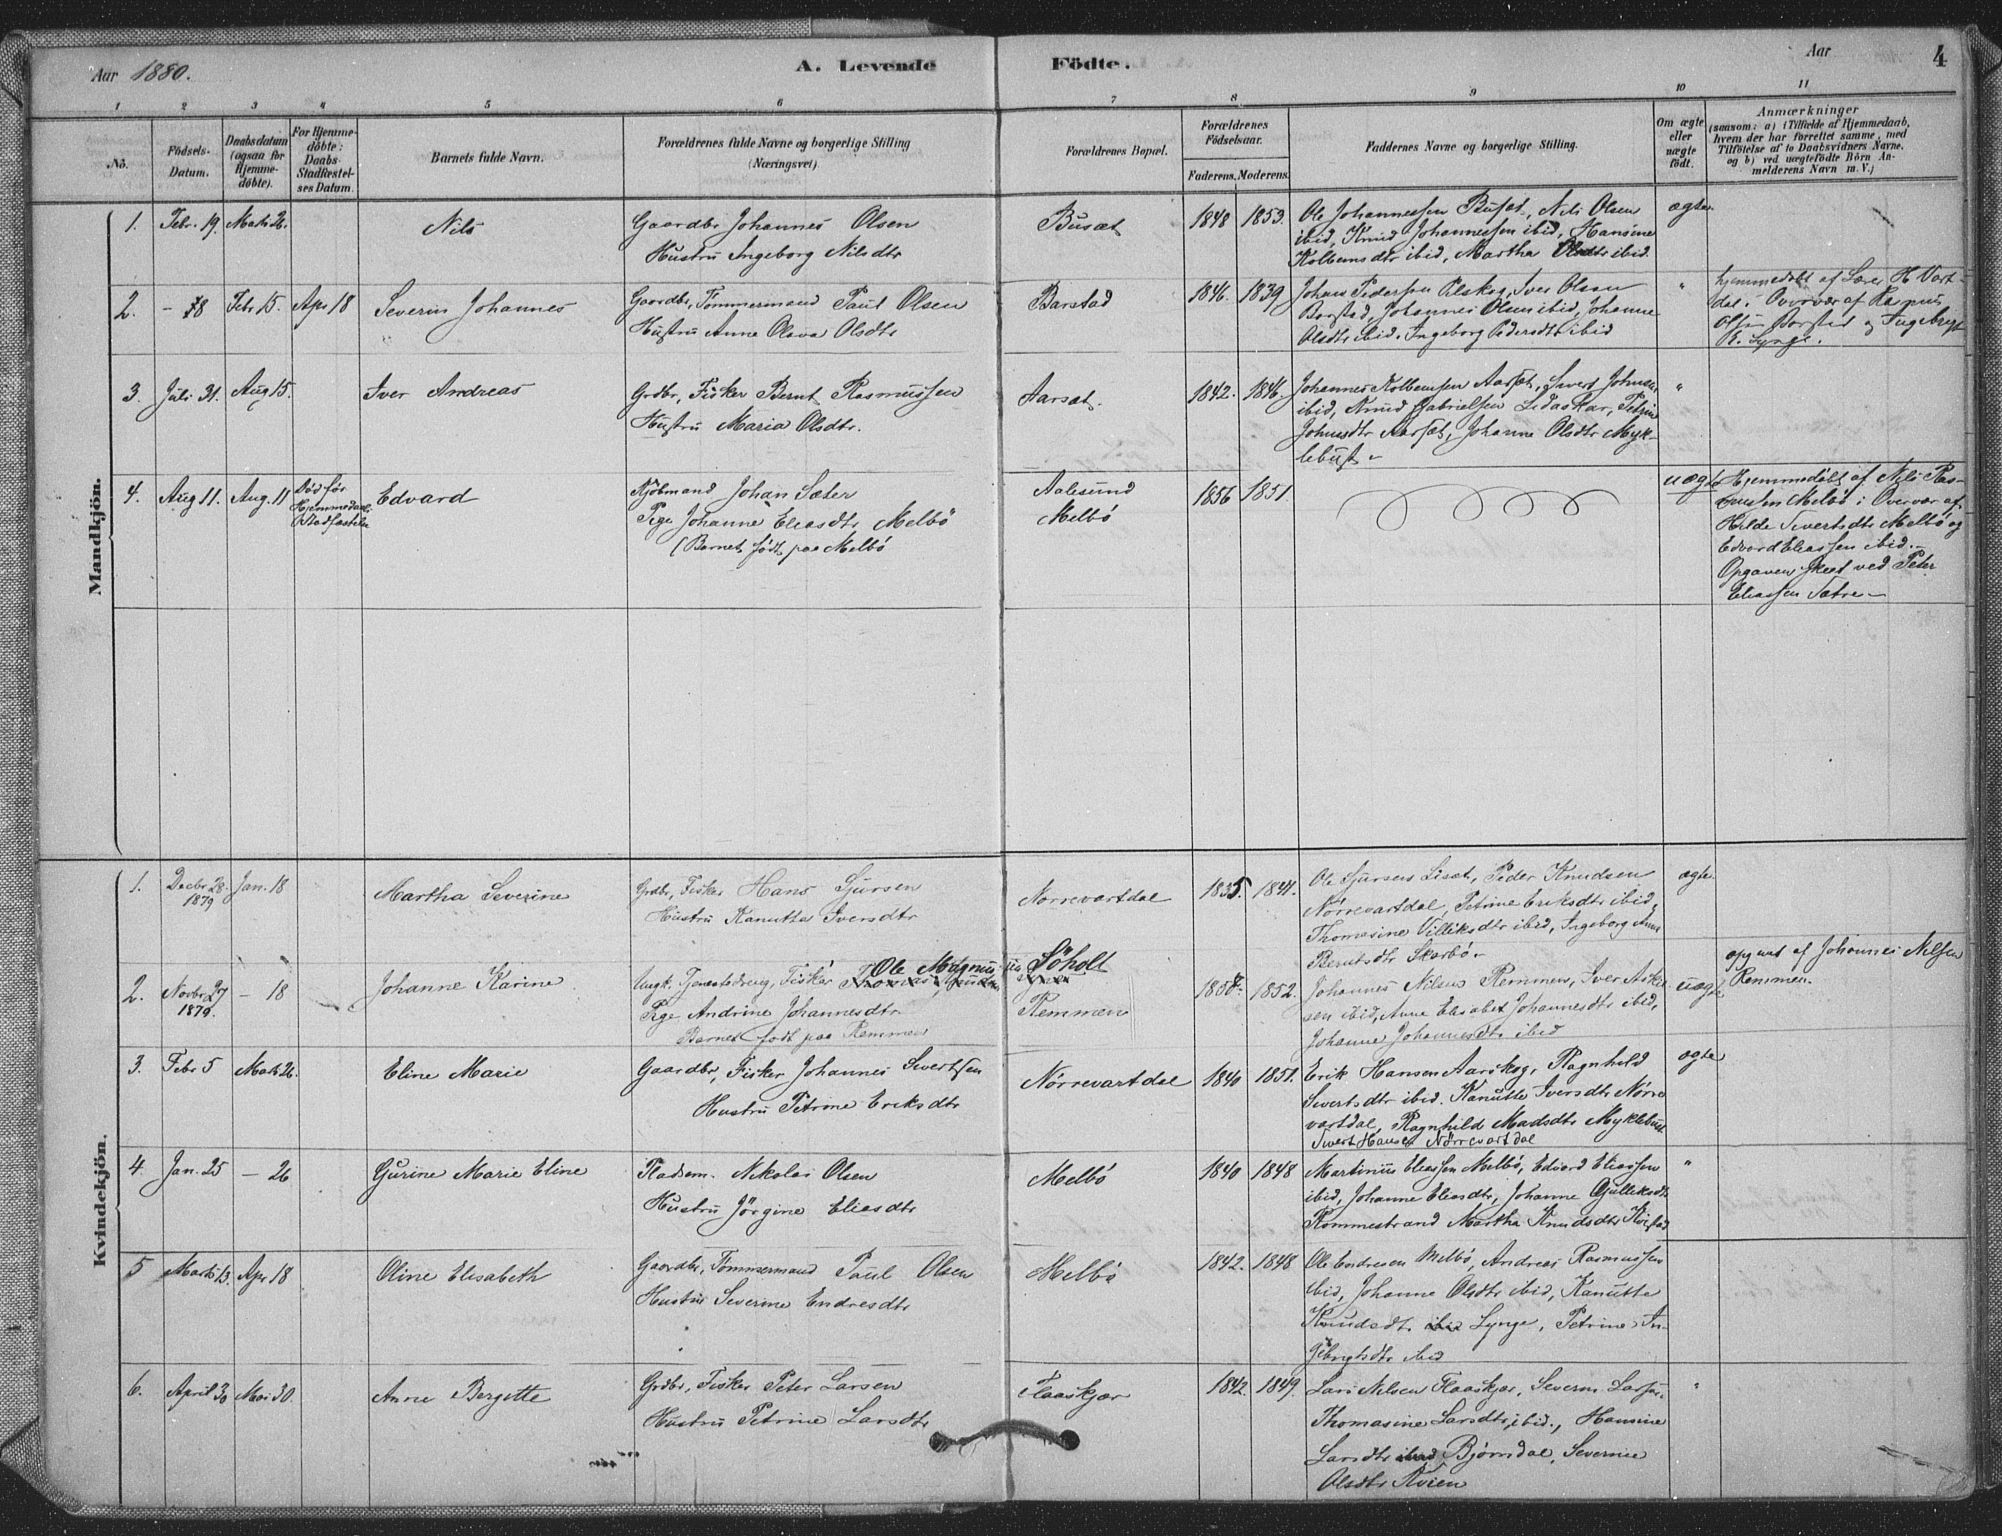 Aar 1880.
A. Levende Födte.
Aar
4
1 2 3 4 5 6 7 8 9 10 11
No.
Födsels-Datum.
Daabsdatum (ogsaa for Hjemme-döbte).
For Hjemme-döbte: Daabs-Stadfæstel-ses Datum.
Barnets fulde Navn.
Forældrenes fulde Navne og borgerlige Stilling
(Næringsvei)
Forældrenes Bopæl.
Forældrenes Födselsaar.
Faderens. Moderens.
Faddernes Navne og borgerlige Stilling.
Om ægte eller uægte födt.
Anmærkninger
(saasom: a) i Tilfælde af Hjemmedaab,
hvem der har forrettet samme, med
Tilföielse af to Daabsvidners Navne,
og b) ved uægtefödte Börn An-
melderens Navn m. V.)
Mandkjön.
1. Febr. 19. Marts 26. Nils
Gaardbr Johannes Olsen
Hustru Ingeborg Nilsdtr
Busæt 1848 1853.
Ole Johannessen Busæt, Nils Olsen
ibid, Knud Johannessen ibid, Hansine
Kolbensdtr ibid, Martha Olsdtr ibid.
ægte
2. - 8 Febr 15. Apr 18 Severin Johannes
Gaardbr, Tömmermand Paul Olsen
Hustru Anne Olava Olsdtr
Barstad 1846. 1839
Johans Pedersen Olskog, Iver Olsen
Barstad, Johannes Olsen ibid, Johanne
Olsdtr ibid. Ingeborg Pedersdtr ibid
"
hjemmedøbt af Lærer H. Vart-
dal. Overvær af Rasmus
Olsen Barstad og Ingebrigt
K. Lynge.
3. Juli 31. Aug 15. Iver Andreas
Grdbr, Fisker Bernt Rasmussen
Hustru Maria Olsdtr.
Aarsæt. 1842. 1846.
Johannes Kolbensen Aarsæt, Sivert Johnsen
ibid, Knud Gabrielsen Lidaskar, Petrine
Johnsdtr Aarsæt, Johanne Olsdtr Myk-
lebust
"
4. Aug 11. Aug. 11 Död før Hjemmedaab. Stadfæstelse Edvard
Kjöbmand Johan Sæter
Pige Johanne Eliasdtr Melbö
(Barnet født paa Melbö
Aalesund
Melbö
1856 1851.
uægte
Hjemmedøbt af Nils Ras-
mussen Melbö i Overvær af
Hilde Sivertsdtr Melbö og
Edvard Eliassen ibid.
Opgaven skeet ved Peter
Eliassen Sætre
Kvindekjön.
1. Decbr 28. 1879 Jan. 18 Martha Severine
Grdbr, Fisker Hans Sjursen
Hustru Kanutta Iversdtr
Nørrevartdal 1835. 1841.
Ole Sjursen Liset, Peder Knudsen
Nørrevartdal, Petrine Eriksdtr ibid,
Thomasine Villiksdtr ibid, Ingeborg Anne
Berntsdtr Skorbö
ægte.
2. Novbr 27 1879. - 18 Johanne Karine
Ungk, Tjenestedreng, Fisker Ole Magnussen
Pige Andrine Johannesdtr
Barnet født paa Remmen
Söholt
Remmen
1852.
Johannes Nilsen Remmen, Iver Asker-
sen ibid, Anne Elisabet Johannesdtr ibid,
Johanne Johannesdtr ibid
uægte
opgivet af Johannes Nilsen
Remmen.
3. Febr 5 Marts 26. Eline Marie
Gaardbr, Fisker Johannes Sivertsen
Hustru Petrine Eriksdtr
Nørrevartdal 1840 1851.
Erik Hansen Aarskog, Ragnhild
Sivertsdtr ibid. Kanutte Iversdtr Nørre
vartdal, Ragnhild Madsdtr Myklebust
Sivert Hansen Nörrevartdal
ægte
4. Jan. 25 - 26 Gurine Marie Eline
Pladsm. Nikolai Olsen
Hustru Jörgine Eliasdtr
Melbö 1840 1848
Martinus Eliassen Melbö, Edvard Eliassen
ibid, Johanne Eliasdtr, Johanne Gulliksdtr
Rommestrand Martha Knudsdtr
"
5 Marts 13. Apr 18 Oline Elisabeth
Gaardbr, Tömmermand Paul Olsen
Hustru Severine Endresdtr
Melbö 1842. 1848
Ole Endresen Melbö, Andreas Rasmussen
ibid, Johanne Olsdtr ibid, Kanutte
Knudsdtr ibid Lynge, Petrine In-
gebrigtsdtr ibid
6. April 30 Mai 30. Anne Bergitte
Grdbr, Fisker Peter Larsen
Hustru Petrine Larsdtr
Flaaskjær 1842. 1849.
Lars Nilsen Flaaskjær, Severin Larsen
Thomasine Larsdtr ibid., Hansine
Larsdtr ibid Bjørndal, Severine
Olsdtr Kvien
"